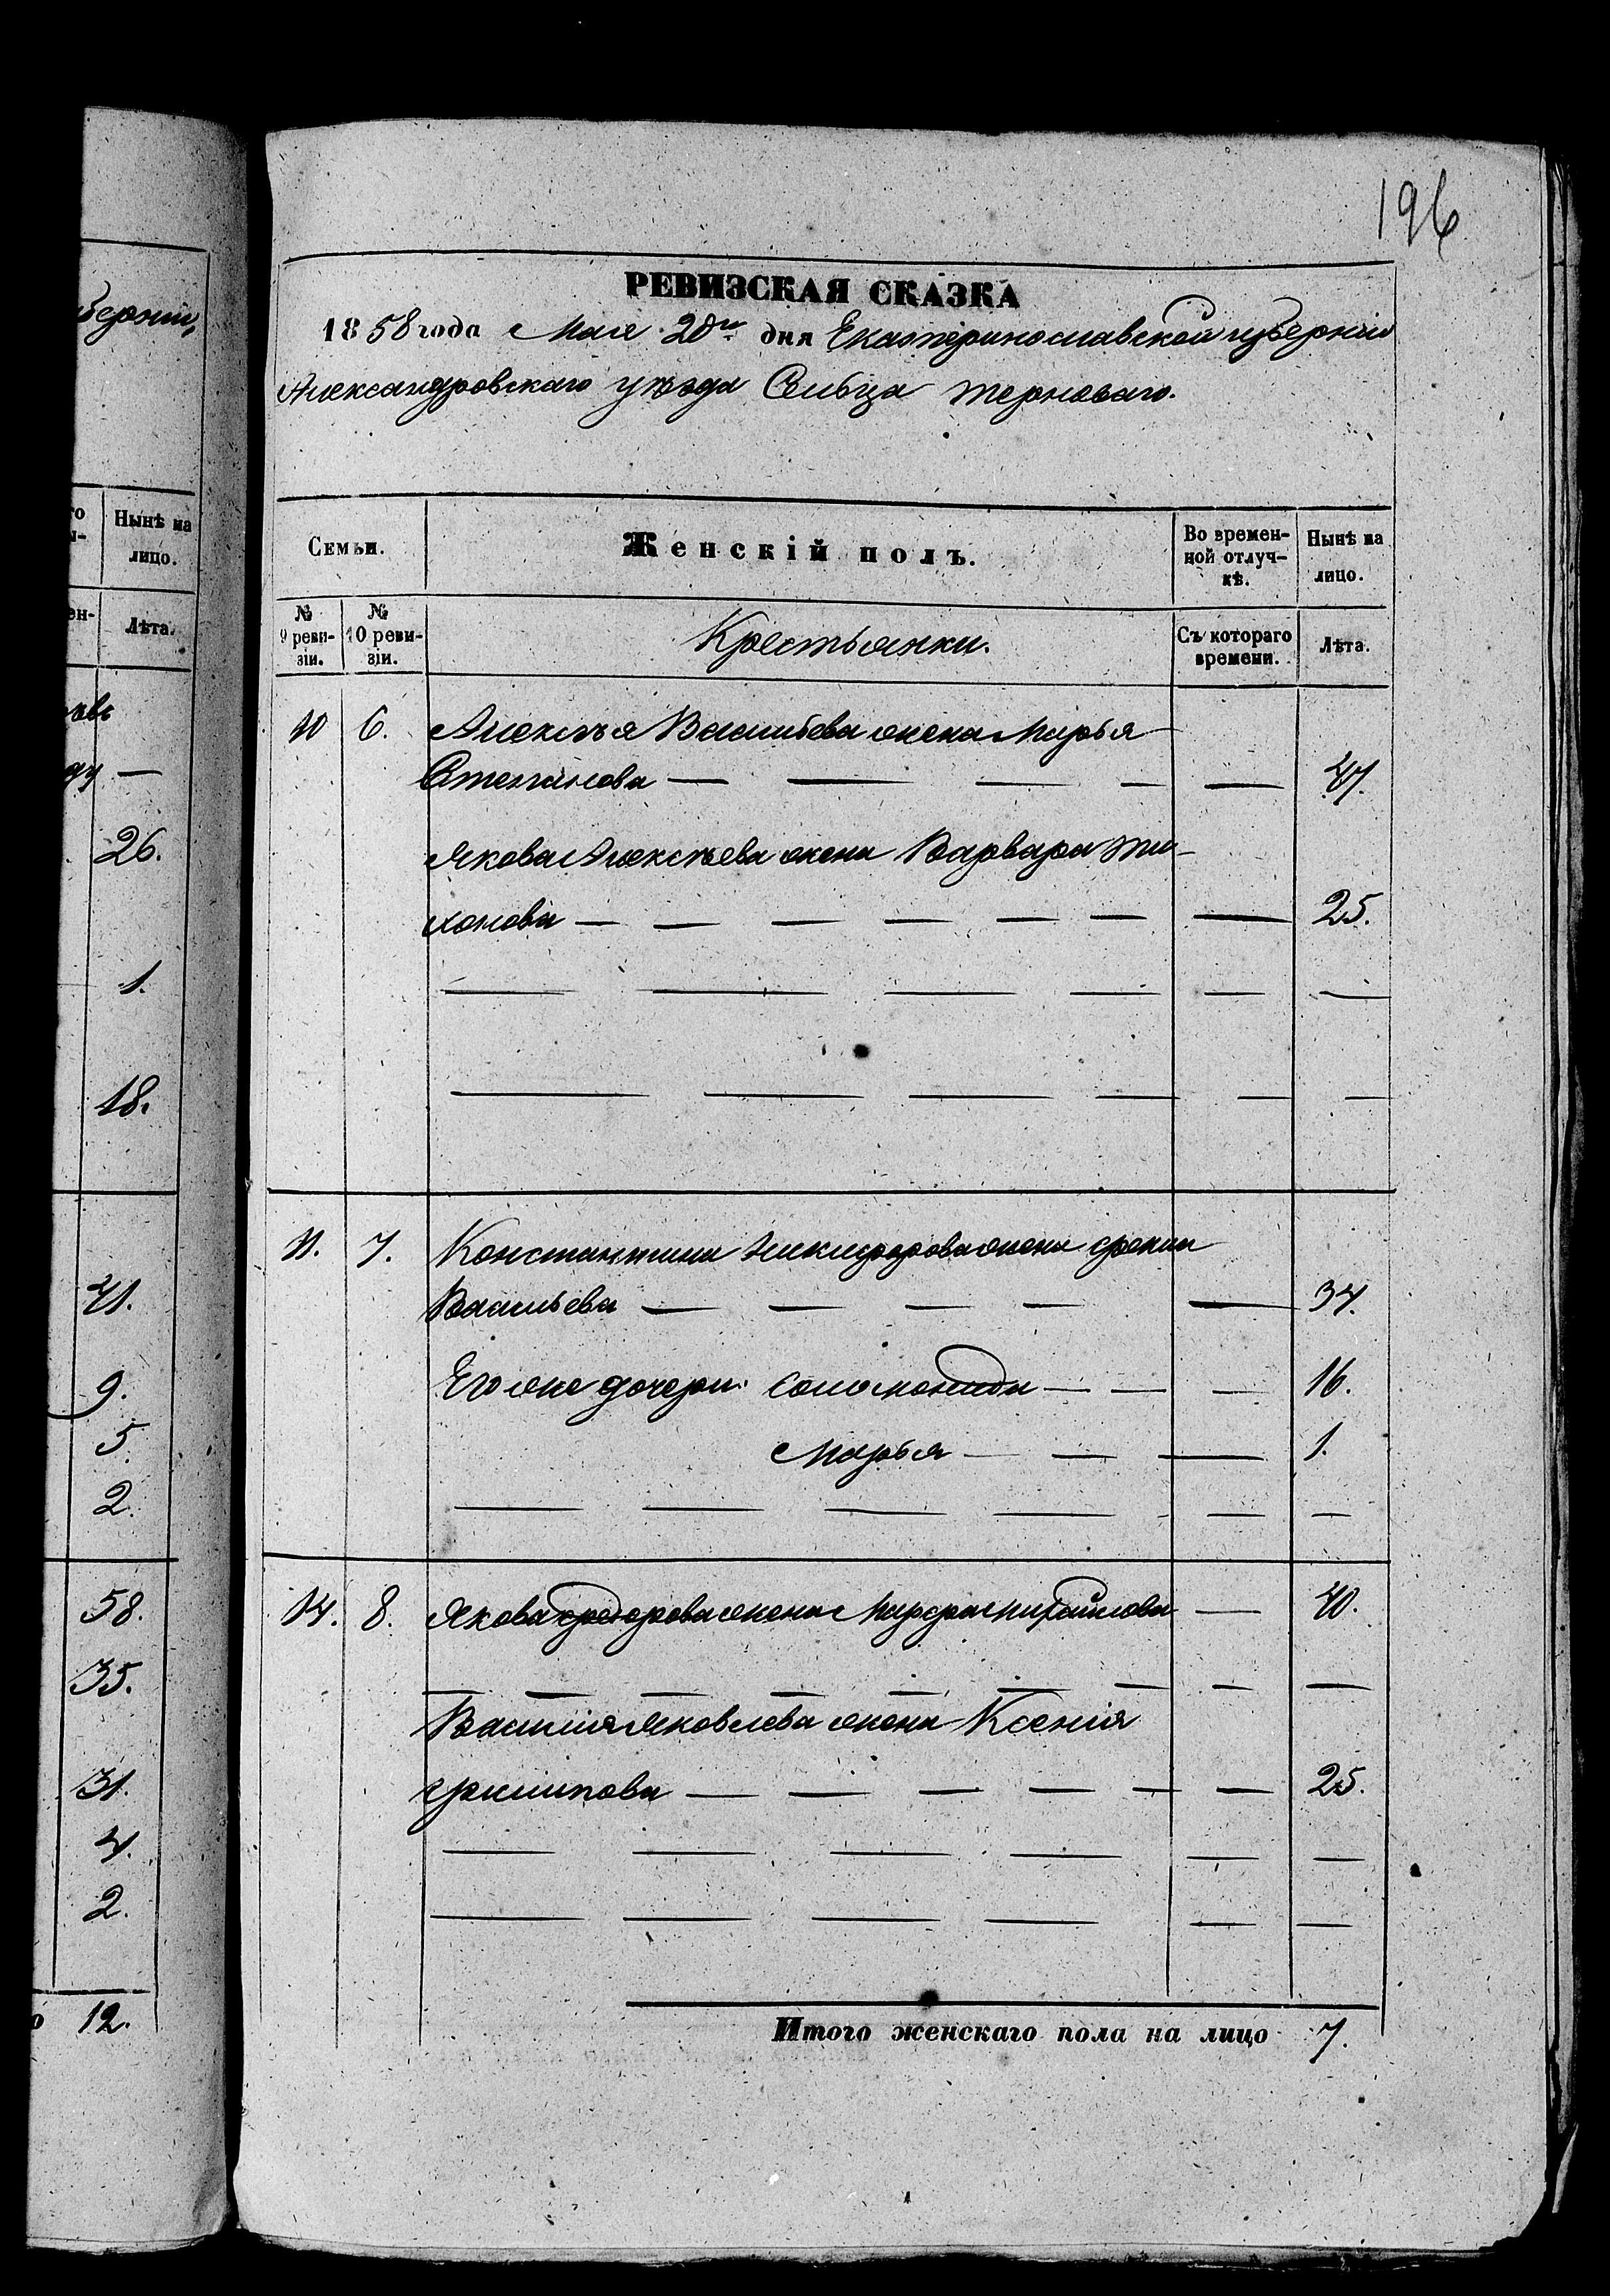 196
губерніи,
РЕВИЗСКАЯ СКАЗКА
1858 года Мая 20го дня Екатеринославской губерніи
Александровскаго уѣзда Сельца Терноваго.
го
Нынѣ на
лицо.
Лѣта.
—
26.
1.
18.
41.
9.
5.
2.
58.
35.
31.
4.
2.
12.
Семьи. Женскій полъ. Во времен-
ной отлуч-
кѣ. Нынѣ на
лицо.
№
9 реви-
зіи. №
10 реви-
зіи. Крестьянки. Съ котораго
времени. Лѣта.
10 6. Алексѣя Васильева жена Марья
Степанова — — — — — 47.
Якова Алексѣева жена Варвара Ти-
хонова — — — — — — — 25.
— — — — — —
— — — — — —
11. 7. Константина Никифорова жена
Васильева — — — — — 34.
Его же дочери: Соломонида — — — 16.
Марья — — — 1.
— — — — — —
14. 8. Якова Федорова жена Марфа Михайлова — 40.
— — — — — — — — —
Василія Яковлева жена Ксенія
Филипова — — — — — — 25.
— — — — — —
— — — — — —
Итого женскаго пола на лицо 7.